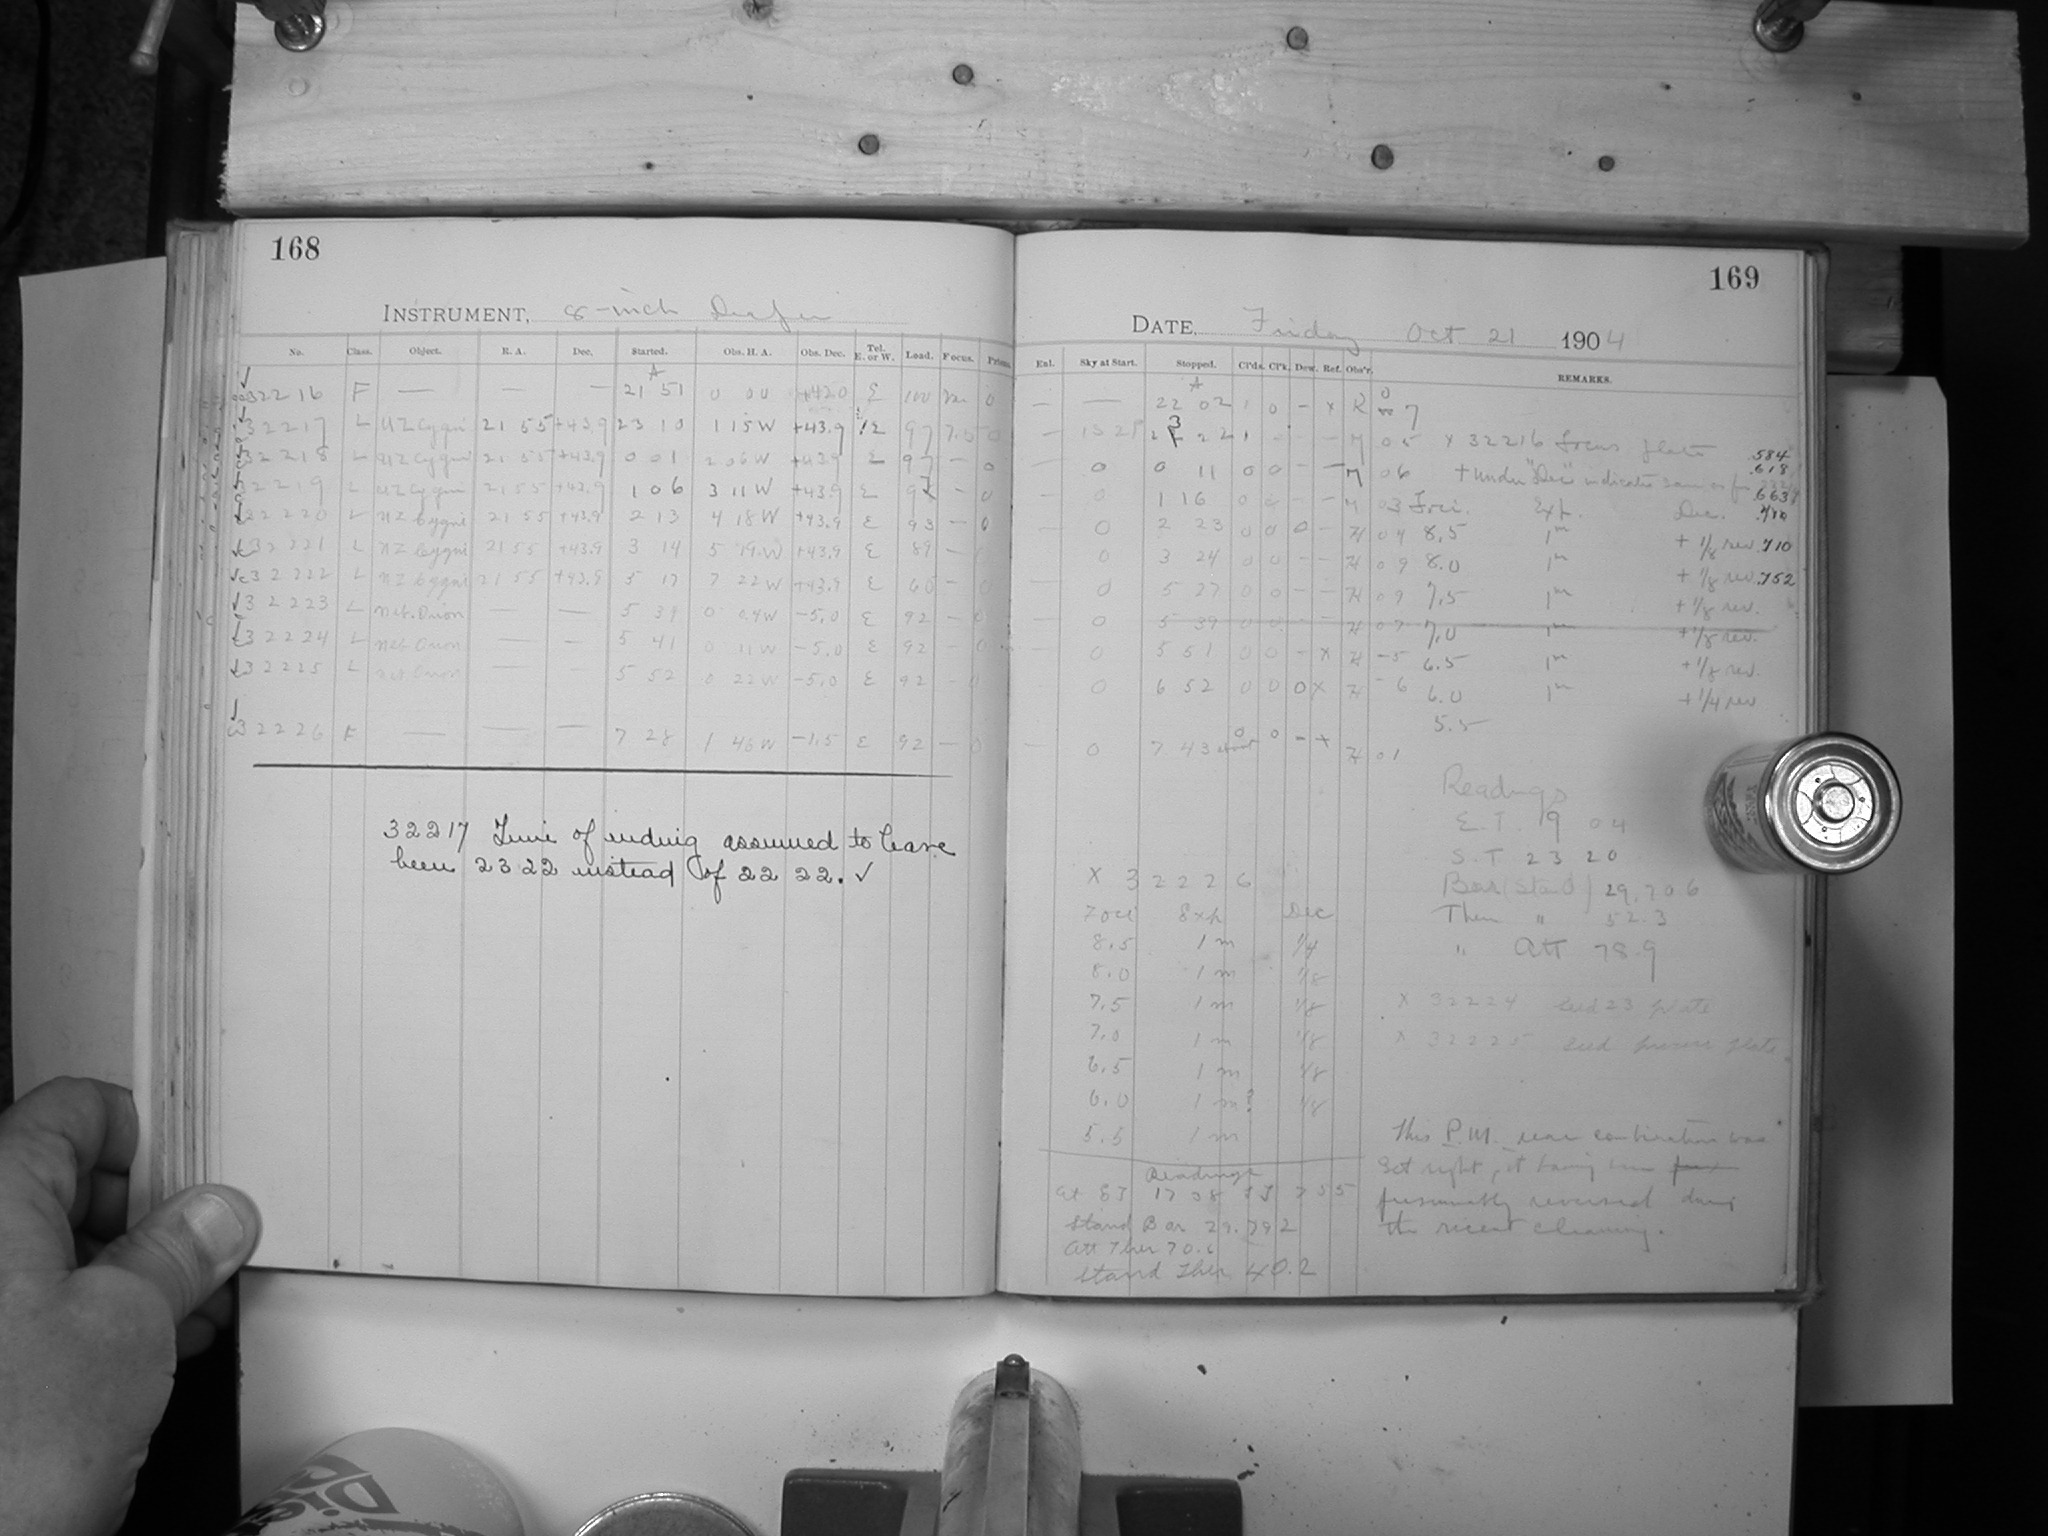 168
INSTRUMENT, 8-inch Draper
No. Class. Object. R. A. Dec. Started. Obs. H. A. Obs. Dec. Tel. E. or W. Load. Focus. Prism.
A
32216 F — — — 21 51 0 00 +42.0 E 100 0
32217 L UZ Cygni 21 55 +43.9 23 10 1 15 W +43.9 97 7.5 0
32218 L UZ Cygni 21 55 +43.9 0 01 2 06 W +43.9 E 97 — 0
32219 L UZ Cygni 21 55 +43.9 1 06 3 11 W +43.9 E 97 — 0
32220 L UZ Cygni 21 55 +43.9 2 13 4 18 W +43.9 E 93 — 0
32221 L UZ Cygni 21 55 +43.9 3 14 5 19 W +43.9 E 89 —
32222 L UZ Cygni 21 55 +43.9 5 17 7 22 W +43.9 E 60 — 0
32223 L Neb. Orion — — 5 39 0 09 W -5.0 E 92 — 0
32224 L Neb Orion — — 5 41 0 11 W -5.0 E 92 — 0
32225 L Neb Orion 5 52 0 22 W -5.0 E 92 — 0
32226 F — — — 7 28 1 46 W -1.5 E 92 — 0
32217 Time of ending assumed to have
been 2322 instead of 22 22. ✓
169
DATE, Friday Oct 21 1904
Enl. Sky at Start. Stopped. Cl'ds. Cl'k. Dew. Ref. Obs'r. REMARKS.
A
— — 22 02 1 0 — x R 7
— 22 1 — — — M 05 x 32216 focus plate .584
— 0 0 11 0 0 — — M 06 + under "Dec" indicates same as .618
— 0 1 16 0 0 — — M 03 Foci. Exp. Dec. .663
0 2 23 0 0 0 — H 04 8.5 1m + 1/8 rev .710
0 3 24 0 0 — — H 09 8.0 1m + 1/8 rev .752
— 0 5 27 0 0 — — H 09 7.5 1m + 1/8 rev.
0 5 39 0 0 — — H 07 7.0 1m + 1/8 rev.
— 0 5 51 0 0 — x H -5 6.5 1m + 1/8 rev.
0 6 52 0 0 0 x H -6 6.0 1m + 1/4 rev
5.5
— 0 7 43 about 0 0 — + H 01
Readings
E.T. 19 04
S.T. 23 20
Bar (Stand) 29.706
Ther " 52.3
" Att 78.9
x 32224 seed 23 plate
x 32225 seed process plate
This P.M. rear combination was
set right, it having been
presumably reversed during
the recent cleaning.
x 32226
Foci Exp Dec
8.5 1m 1/4
8.0 1m 1/8
7.5 1m 1/8
7.0 1m 1/8
6.5 1m 1/8
6.0 1m? 1/8
5.5 1m
Readings
at ET 17 38 ST 7 55
Stand Bar 29.792
Att Ther 70.6
Stand Ther 40.2